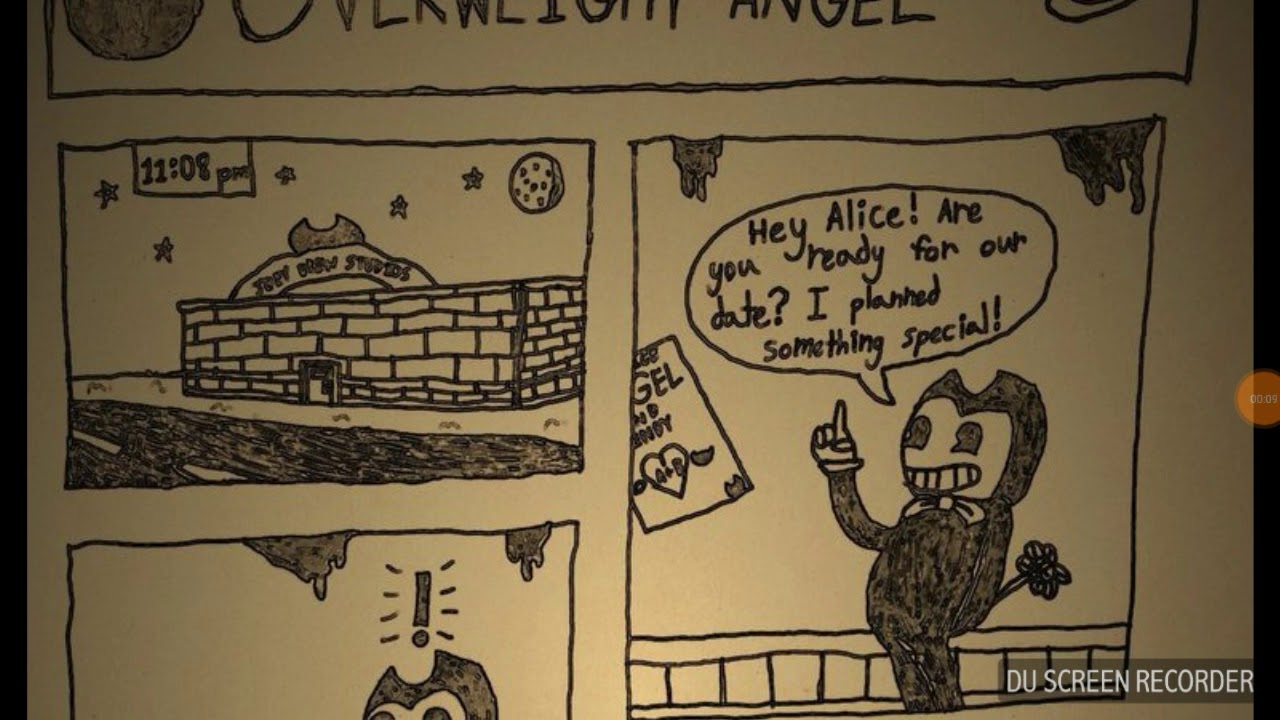 OVERWEIGHT ANGEL
11:08 pm
JOEY DREW STUDIOS
Hey Alice! Are
you ready for our
date? I planned
something special!
GEL
ND
A+B
!
00:09
DU SCREEN RECORDER